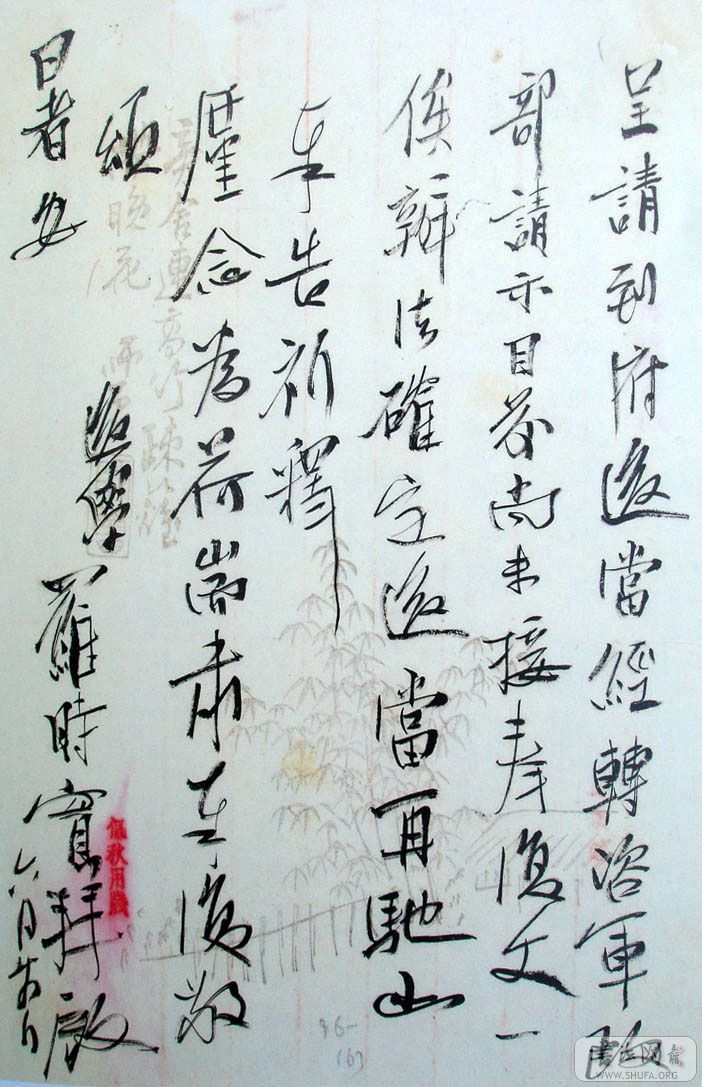 呈請到府後當經轉咨軍政
部請示目前尚未接奉復文一
俟辦法確定後當再馳函
奉告祈釋
廑念為荷耑肅奉復敬
頌
暑安
後學羅時實拜啟
六月日
秋用牋
舍連高竹疎籬
晚花
書法网
WWW.SHUFA.ORG